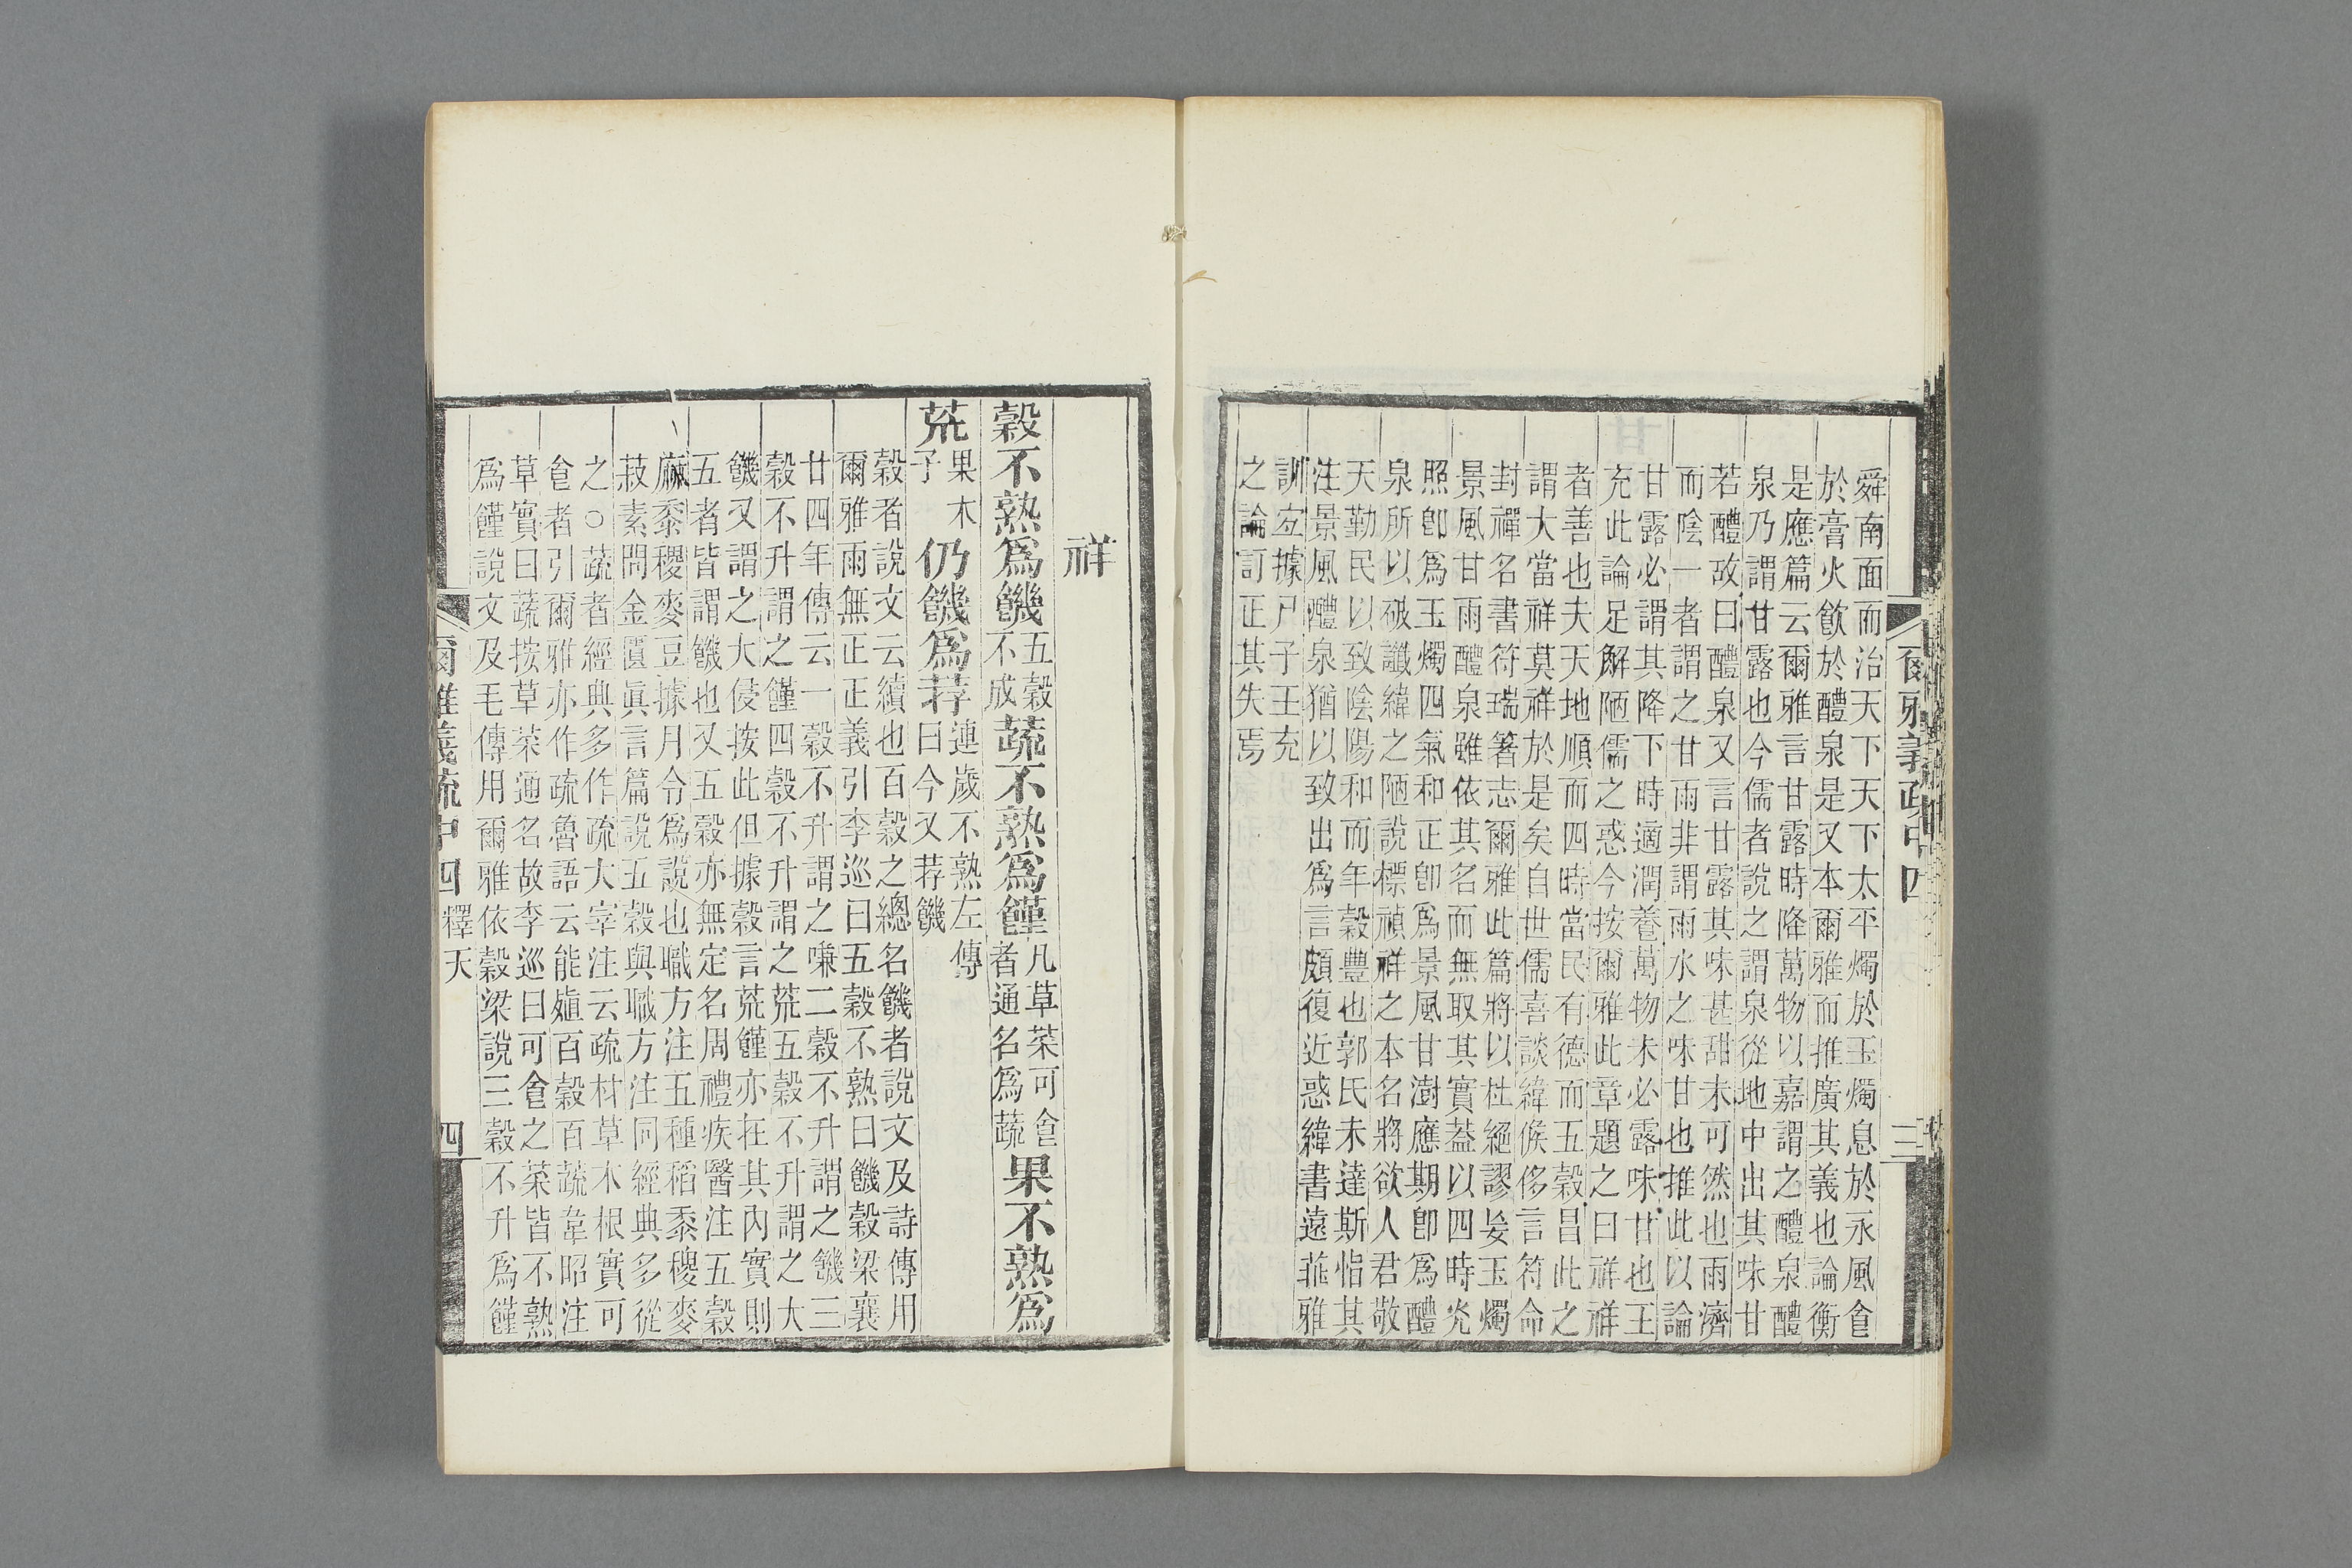 爾雅義疏中四 三
舜南面而治天下天下太平燭於玉燭息於永風食
於膏火飲於醴泉是又本爾雅而推廣其義也論衡
是應篇云爾雅言甘露時降萬物以嘉謂之醴泉醴
泉乃謂甘露也今儒者說之謂泉從地中出其味甘
若醴故曰醴泉又言甘露其味甚甜未可然也雨濟
而陰一者謂之甘雨非謂雨水之味甘也推此以論
甘露必謂其降下時適潤養萬物未必露味甘也王
充此論足解陋儒之惑今按爾雅此章題之曰祥祥
者善也夫天地順而四時當民有德而五穀昌此之
謂大當祥莫祥於是矣自世儒喜談緯候侈言符命
封禪名書符瑞箸志爾雅此篇將以杜絕謬妄玉燭
景風甘雨醴泉雖依其名而無取其實葢以四時光
照卽爲玉燭四氣和正卽爲景風甘澍應期卽爲醴
泉所以破讖緯之陋說標禎祥之本名將欲人君敬
天勤民以致陰陽和而年穀豐也郭氏未達斯恉其
注景風醴泉猶以致出爲言頗復近惑緯書遠乖雅
訓宐據尸子王充
之論訂正其失焉
祥
穀不熟爲饑五穀不成蔬不熟爲饉凡草菜可食者通名爲蔬果不熟爲
荒果木子仍饑爲荐連歲不熟左傳曰今又荐饑
穀者說文云續也百穀之總名饑者說文及詩傳用
爾雅雨無正正義引李巡曰五穀不熟曰饑穀梁襄
廿四年傳云一穀不升謂之嗛二穀不升謂之饑三
穀不升謂之饉四穀不升謂之荒五穀不升謂之大
饑又謂之大侵按此但據穀言荒饉亦在其內實則
五者皆謂饑也又五穀亦無定名周禮疾醫注五穀
麻黍稷麥豆據月令爲說也職方注五種稻黍稷麥
菽素問金匱眞言篇說五穀與職方注同經典多從
之○蔬者經典多作疏大宰注云疏材草木根實可
食者引爾雅亦作疏魯語云能殖百穀百蔬韋昭注
草實曰蔬按草菜通名故李巡曰可食之菜皆不熟
爲饉說文及毛傳用爾雅依穀梁說三穀不升爲饉
爾雅義疏中四 釋天 四